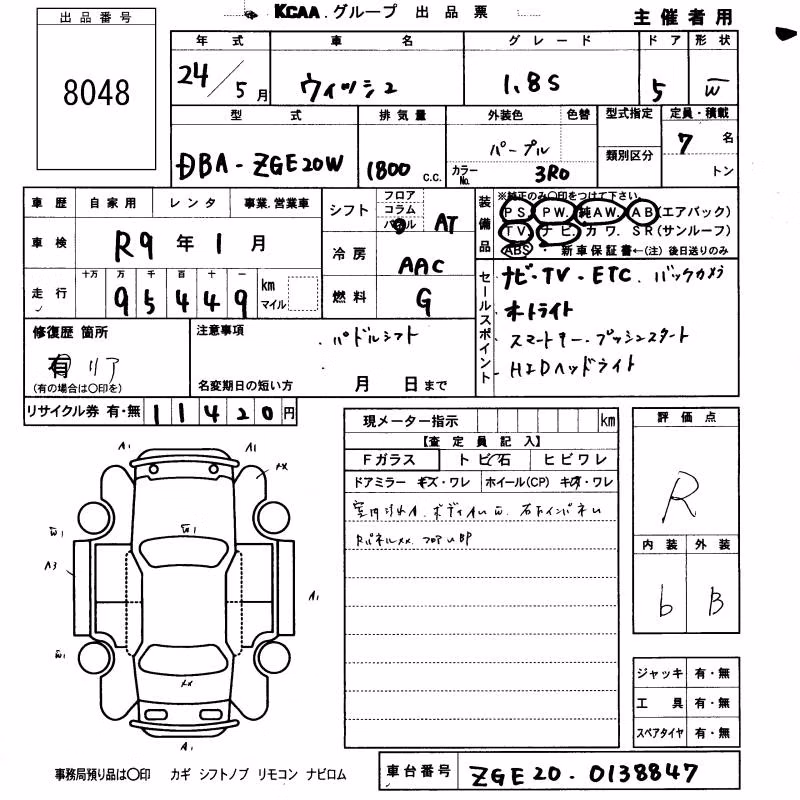 KCAA.グループ 出品票
主催者用
出品番号
8048
年式 車名 グレード ドア 形状
24/5月 ウィッシュ 1.8S 5 W
型式 排気量 外装色 色替 型式指定 定員・積載
DBA-ZGE20W 1800 c.c. パープル カラーNo. 3R0 類別区分 7名 トン
車歴 自家用 レンタ 事業.営業車
車検 R9年1月
走行 十万 万 千 百 十 一
95449 km マイル
シフト フロア コラム パネル AT
冷房 AAC
燃料 G
装備品
※純正のみ〇印をつけて下さい
PS. PW. 純AW. AB(エアバック)
TV. ナビ カワ. SR(サンルーフ)
ABS ・ 新車保証書←(注)後日送りのみ
セールスポイント
ナビ・TV・ETC. バックカメラ
オートライト
スマートキー・プッシュスタート
HIDヘッドライト
修復歴 箇所
有 リア
(有の場合は〇印を)
注意事項
.パドルシフト
名変期日の短い方 月 日まで
リサイクル券 有・無 11420円
現メーター指示 km
【査定員記入】
Fガラス トビ石 ヒビワレ
ドアミラー キズ・ワレ ホイール(CP) キズ・ワレ
Rパネルxx. フロアuBP
評価点
R
内装 外装
b B
ジャッキ 有・無
工具 有・無
スペアタイヤ 有・無
A1 A1
xx
W1 W1
A3 A1
W1
xx
A1
事務局預り品は〇印 カギ シフトノブ リモコン ナビロム
車台番号 ZGE20-0138847